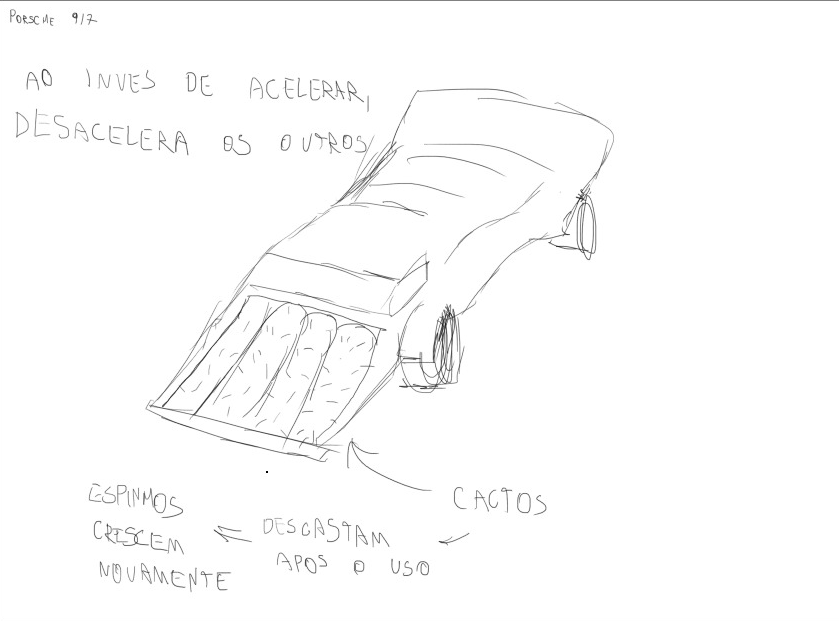 PORSCHE 917
AO INVES DE ACELERAR,
DESACELERA OS OUTROS
CACTOS
DESGASTAM
APOS O USO
ESPINHOS
CRESCEM
NOVAMENTE